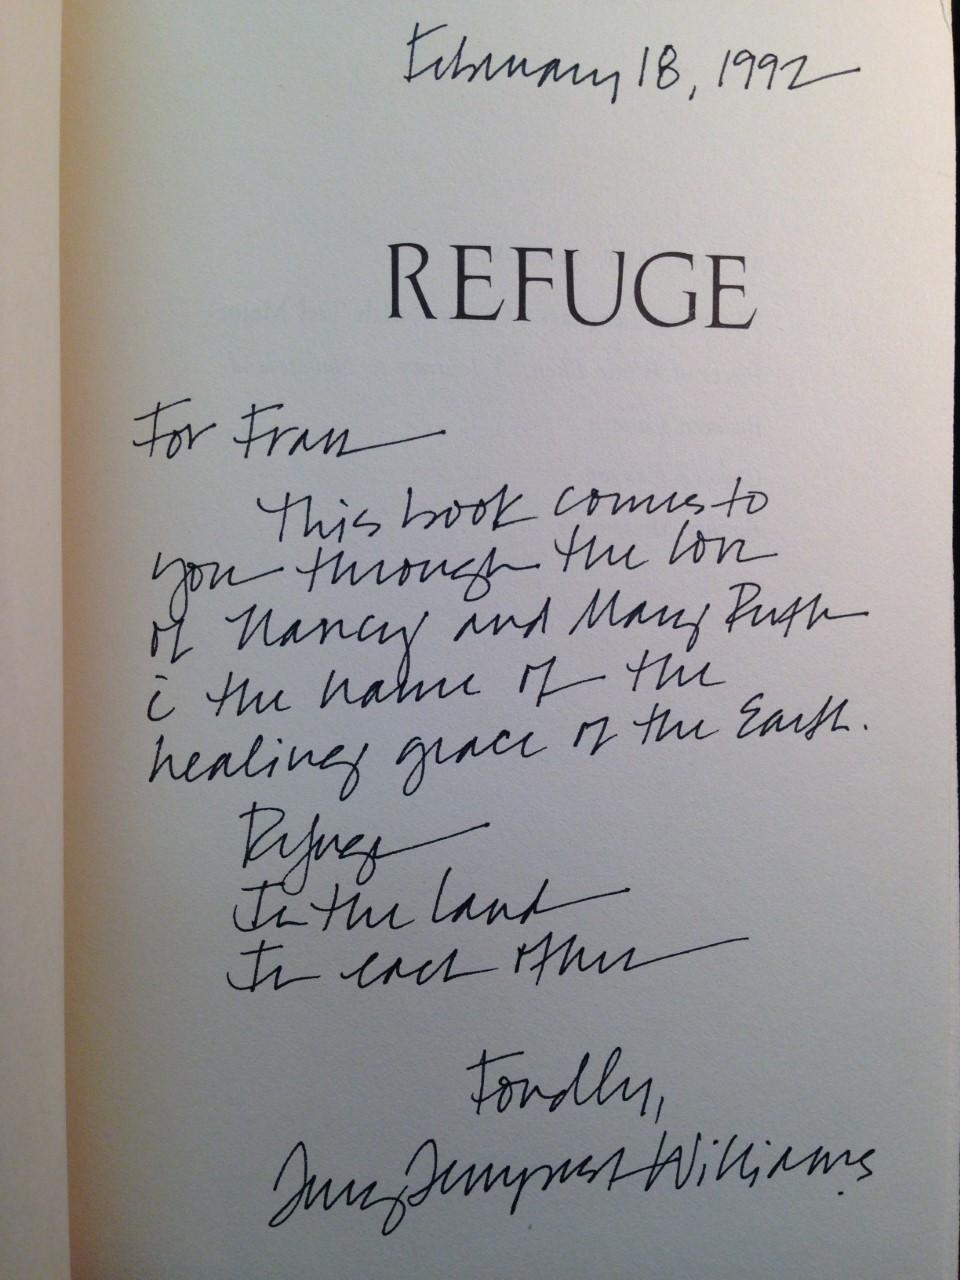 February 18, 1992
REFUGE
For Fran
This book comes to
you through the love
of Nancy and Mary Ruth
i the name of the
healing grace of the Earth.
Refuge
In the land
In each other
Fondly,
Terry Tempest Williams